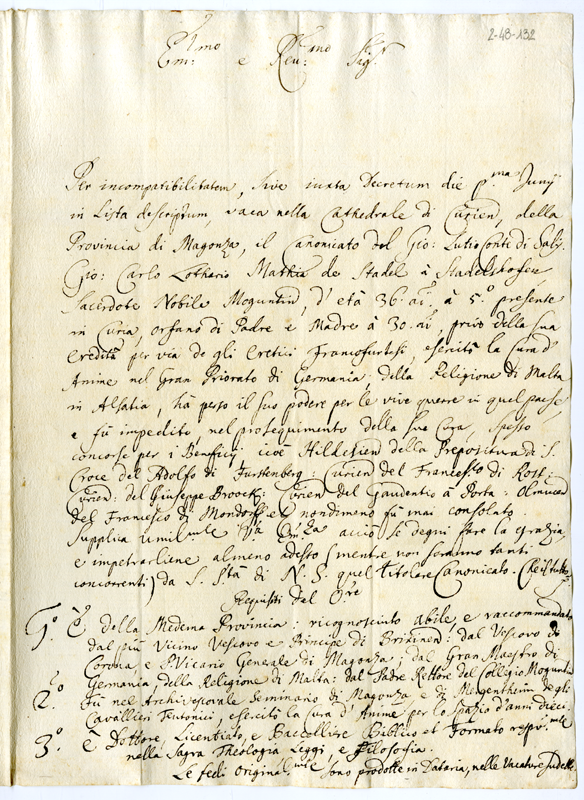 2-48-132
Em:mo e Reu:mo Sig.r
Per incompatibilitatem, sive iuxta Decretum die p.ma Junij
in Lista descriptum, vaca nella Cathedrale di Curien, della
Provincia di Magonza, il Canonicato del Gio: Lutio Conti di Salis.
Gio: Carlo Lothario Mathia de Stadel à Stadelshofen
Sacerdote Nobile Moguntin, d'età 36. an: à 5.o presente
in Curia, orfano di Padre e Madre à 30. an, privo della sua
eredità per via de gli eretici Francofurtesi, esercitò la Cura d'
Anime nel Gran Priorato di Germania, della Religione di Malta
in Alsatia, hà perso il suo podere per le vive guerre in quel paese
e fù impedito, nel proseguimento della sua Cura, spesso
concorse per i Benficij cioè Hildesien della Prepositura di S.
Croce del Adolfo di Furstenberg: Curien del Francesco di Rost:
Curien: del Giuseppe Broock: Curien del Gaudentio à Porta: Olmucen
del Francesco di Mondorff e nondimeno fù mai consolato.
Supplia umilm.te V.ra Em.za acciò se degni fare la grazia,
e impetrarliene almeno adesso (mentre non saranno tanti
concorrenti) da S. S.tà di N. S. quel titolare Canonicato. Che il tutto
Requisiti del O.re
1.o È della Medema Provincia: ricognosciuto abile e raccommandato
dal più Vicino Vescovo e Principe di Brixinen: dal Vescovo di
Corona e S. Vicario Generale di Magonza; dal Gran Maestro di
Germania, della Religione di Malta: dal Padre Rettore del Collegio Moguntin
2.o Fù nel Archivescovale Seminario di Magonza e di Mergentheim degli
Cavallieri Teutonici, esercitò la Cura d'Anime per lo spazio d'anni dieci.
3.o È Dottore, Licentiato, e Baccelliere Biblico et Formato respv.mte
nella Sagra Theologia Leggi, e Filosofia.
Le fedi Original.mte sono prodotte in Dataria, nelle Vacature sudette